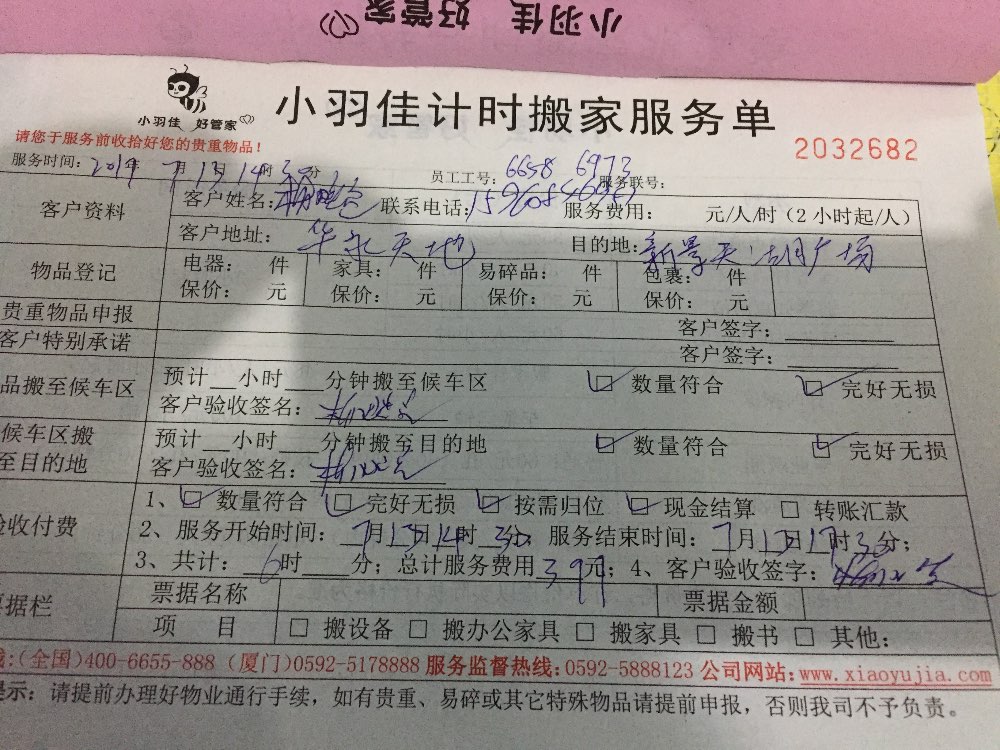 小羽佳 好管家
小羽佳 好管家
小羽佳计时搬家服务单
2032682
请您于服务前收拾好您的贵重物品!
服务时间: 2019年 7月13日14时30分 员工工号: 6658 6973 服务联号:
客户资料 客户姓名: 联系电话: 服务费用: 元/人/时(2小时起/人)
客户地址: 华永天地 目的地: 新景天湖广场
物品登记 电器: 件 家具: 件 易碎品: 件 包裹: 件
保价: 元 保价: 元 保价: 元 保价: 元
贵重物品申报 客户签字:
客户特别承诺 客户签字:
品搬至候车区 预计__小时___分钟搬至候车区 ☑ 数量符合 ☑ 完好无损
客户验收签名:
候车区搬至目的地 预计__小时___分钟搬至目的地 ☑ 数量符合 ☑ 完好无损
客户验收签名:
验收付费 1、☑ 数量符合 ☑ 完好无损 ☑ 按需归位 ☑ 现金结算 □ 转账汇款
2、服务开始时间: 7月13日14时30分 服务结束时间: 7月13日17时30分;
3、共计: 6时____分; 总计服务费用 399元; 4、客户验收签字:
票据栏 票据名称 票据金额
项 目 □ 搬设备 □ 搬办公家具 □ 搬家具 □ 搬书 □ 其他:
线:(全国)400-6655-888 (厦门)0592-5178888 服务监督热线:0592-5888123 公司网站:www.xiaoyujia.com
提示: 请提前办理好物业通行手续, 如有贵重、易碎或其它特殊物品请提前申报, 否则我司不予负责。